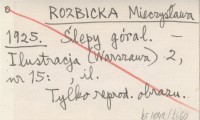 ROZBICKA Mieczysława
1925. Ślepy góral. —
Ilustracja (Warszawa) 2,
nr 15: , il.
Tylko reprod. obrazu.